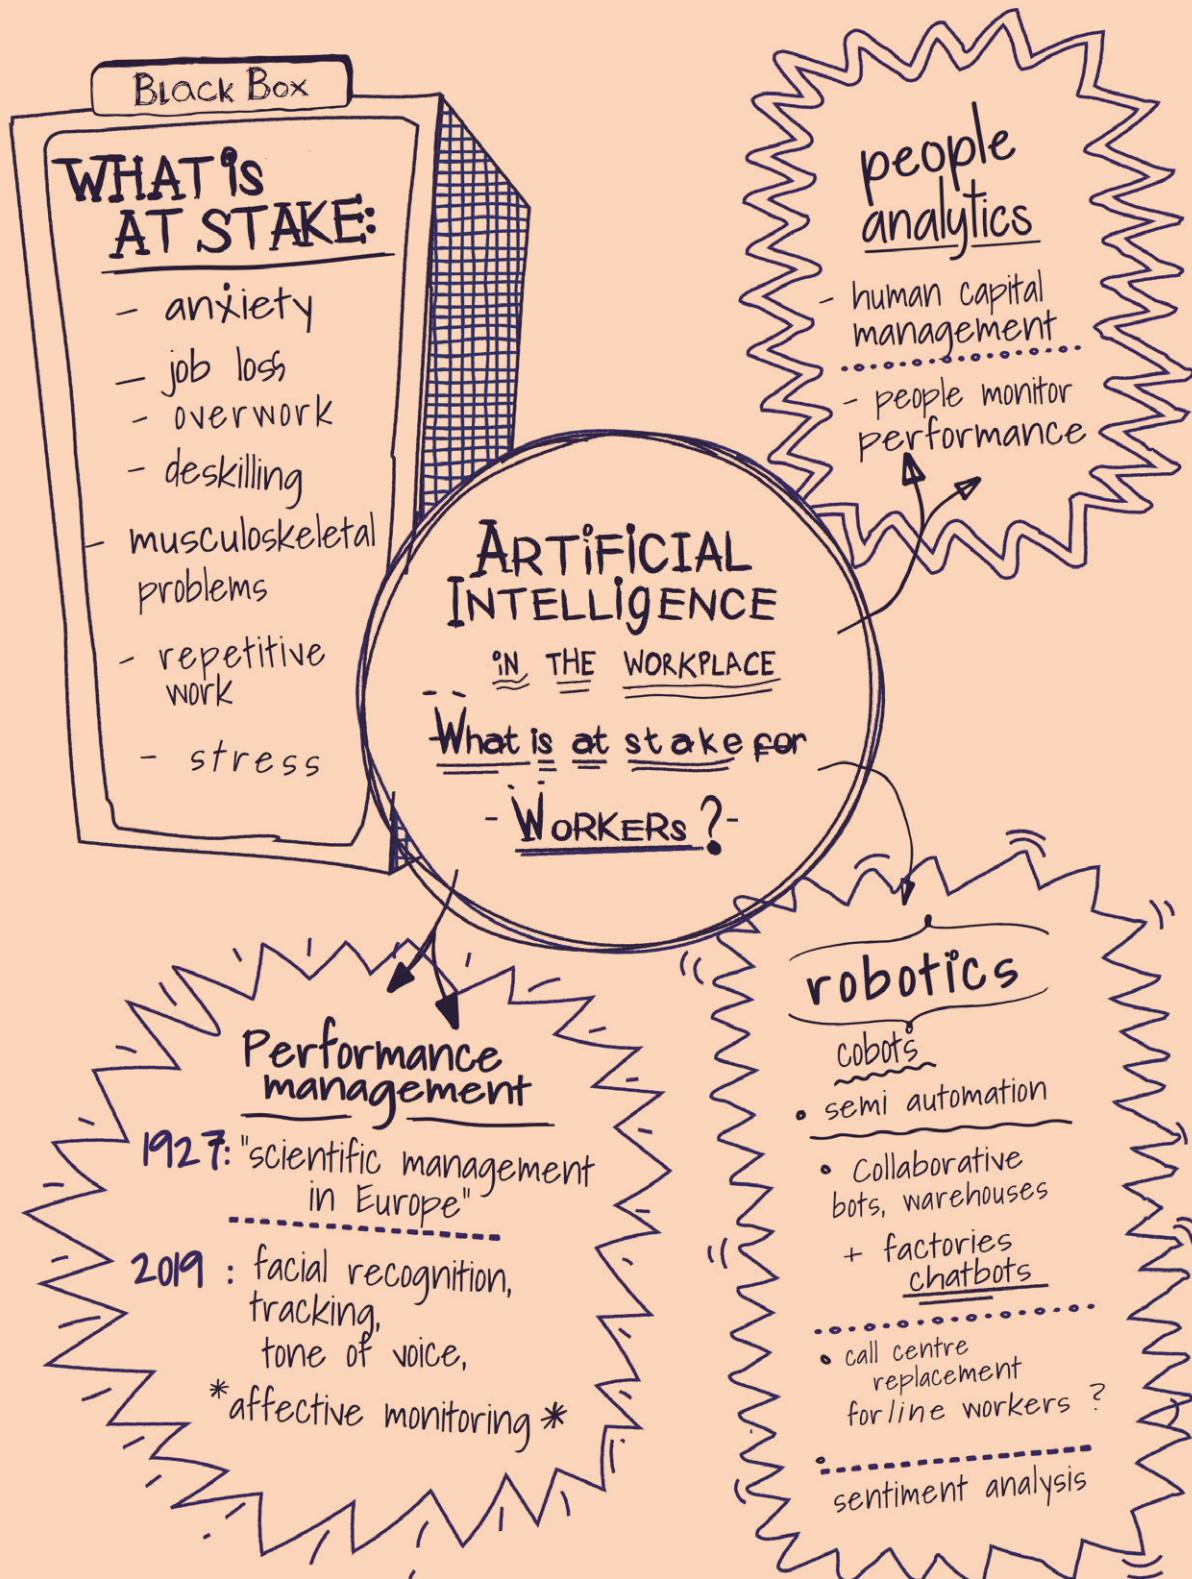 Black Box
WHAT is
AT STAKE:
- anxiety
- job loss
- overwork
- deskilling
- musculoskeletal
problems
- repetitive
work
- stress
ARTiFiCIAL
INTELLigENCE
iN THE WORKPLACE
What is at stake for
- WORKERS ? -
people
analytics
- human capital
management
- people monitor
performance
Performance
management
1927: "scientific management
in Europe"
2019 : facial recognition,
tracking,
tone of voice,
*affective monitoring *
robotics
cobots
• semi automation
• Collaborative
bots, warehouses
+ factories
chatbots
• call centre
replacement
for/line workers ?
•
sentiment analysis